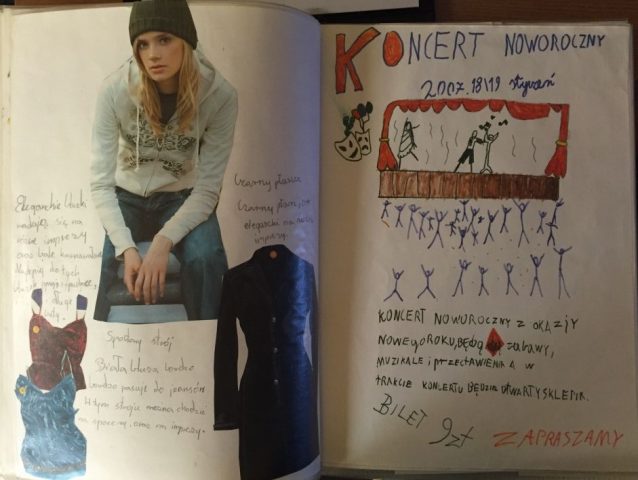 Eleganckie bluzki
nadają się na
różne imprezy
oraz bale karnawałowe
Najlepiej do tych
długie
Czarny płaszcz
Czarny płaszcz
elegancki na różne
imprezy.
Spodnny strój
Biała bluza bardzo
bardzo pasuje do jeansów
W tym stroju można chodzić
na spacery, oraz na imprezy.
KONCERT NOWOROCZNY
2007.18|19 styczeń
KONCERT NOWOROCZNY Z OKAZJY
NOWEGO ROKU, BĘDĄ ZABAWY,
MUZIKALE i PRZECTAWIENIA A W
TRAKCIE KONCERTU BĘDZIE OTWARTY SKLEPIK.
BILET 9zł
ZAPRASZAMY